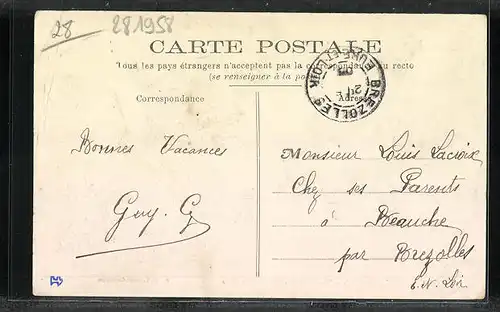 28
281958
CARTE POSTALE
Tous les pays étrangers n'acceptent pas la correspondance au recto
(se renseigner à la po
Correspondance
Adres
BREZOLLES
EURE-ET-LOIR
Bonnes Vacances
Guy.
Monsieur Louis Lacroix
Chez ses Parents
à Beauche
par Brezolles
E. N. Loir